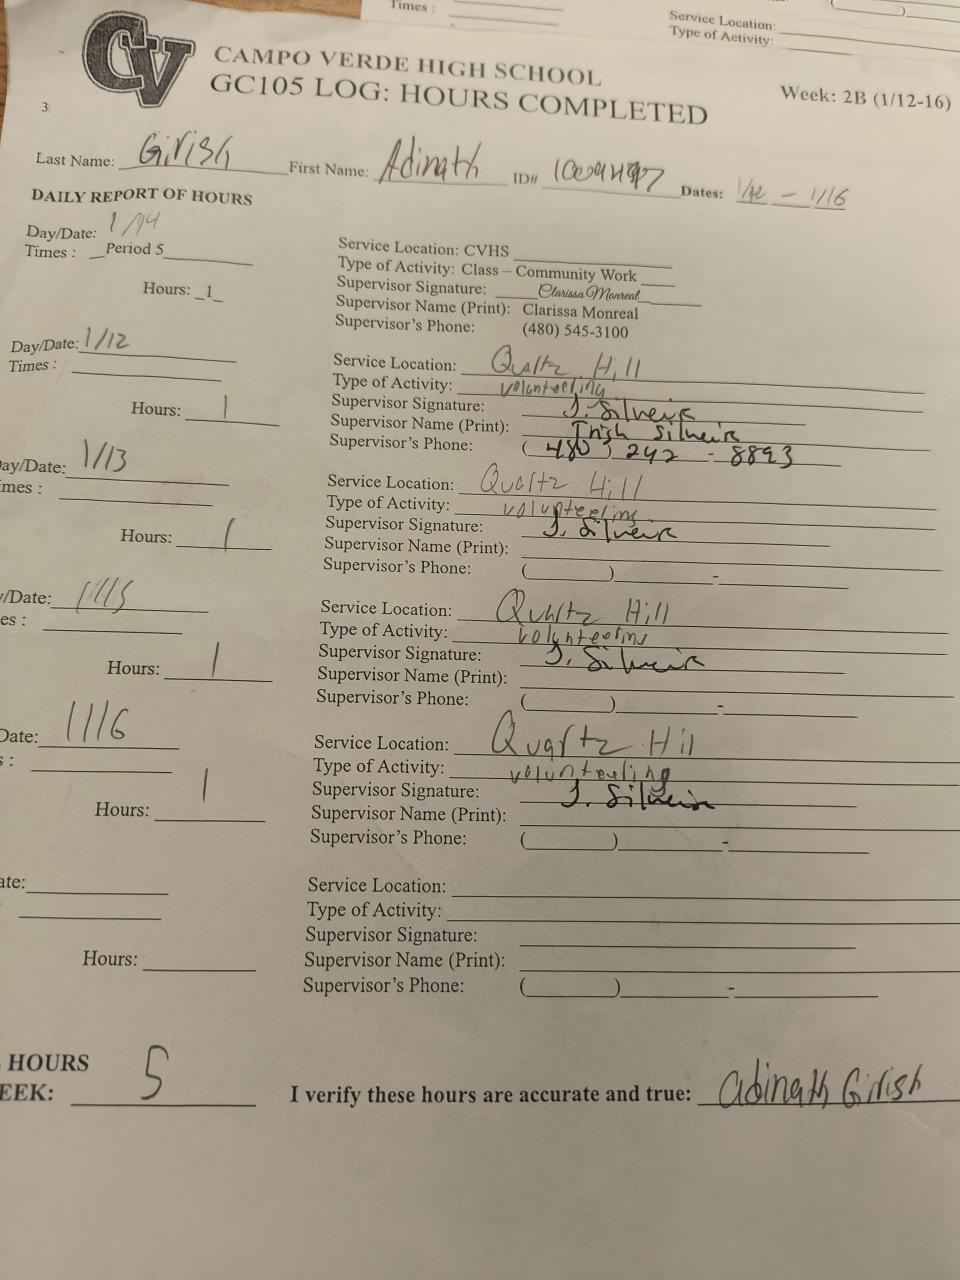 Times :
Service Location:
Type of Activity:
CV
CAMPO VERDE HIGH SCHOOL
GC105 LOG: HOURS COMPLETED
Week: 2B (1/12-16)
3
Last Name: Girish First Name: Adinath ID# Dates: 1/12 - 1/16
DAILY REPORT OF HOURS
Day/Date: 1/14
Times : Period 5
Hours: 1
Service Location: CVHS
Type of Activity: Class – Community Work
Supervisor Signature: Clarissa Monreal
Supervisor Name (Print): Clarissa Monreal
Supervisor's Phone: (480) 545-3100
Day/Date: 1/12
Times :
Hours: 1
Service Location: Quartz Hill
Type of Activity: volunteering
Supervisor Signature: T. Silveira
Supervisor Name (Print): Trish Silveira
Supervisor's Phone: (480) 242 - 8893
ay/Date: 1/13
mes :
Hours: 1
Service Location: Quartz Hill
Type of Activity: volunteering
Supervisor Signature: T. Silveira
Supervisor Name (Print):
Supervisor's Phone: ( ) -
/Date: 1/15
es :
Hours: 1
Service Location: Quartz Hill
Type of Activity: volunteering
Supervisor Signature: T. Silveira
Supervisor Name (Print):
Supervisor's Phone: ( ) -
Date: 1/16
s :
Hours: 1
Service Location: Quartz Hill
Type of Activity: volunteering
Supervisor Signature: T. Silveira
Supervisor Name (Print):
Supervisor's Phone: ( ) -
ate:
Hours:
Service Location:
Type of Activity:
Supervisor Signature:
Supervisor Name (Print):
Supervisor's Phone: ( ) -
HOURS
EEK: 5
I verify these hours are accurate and true: Adinath Girish